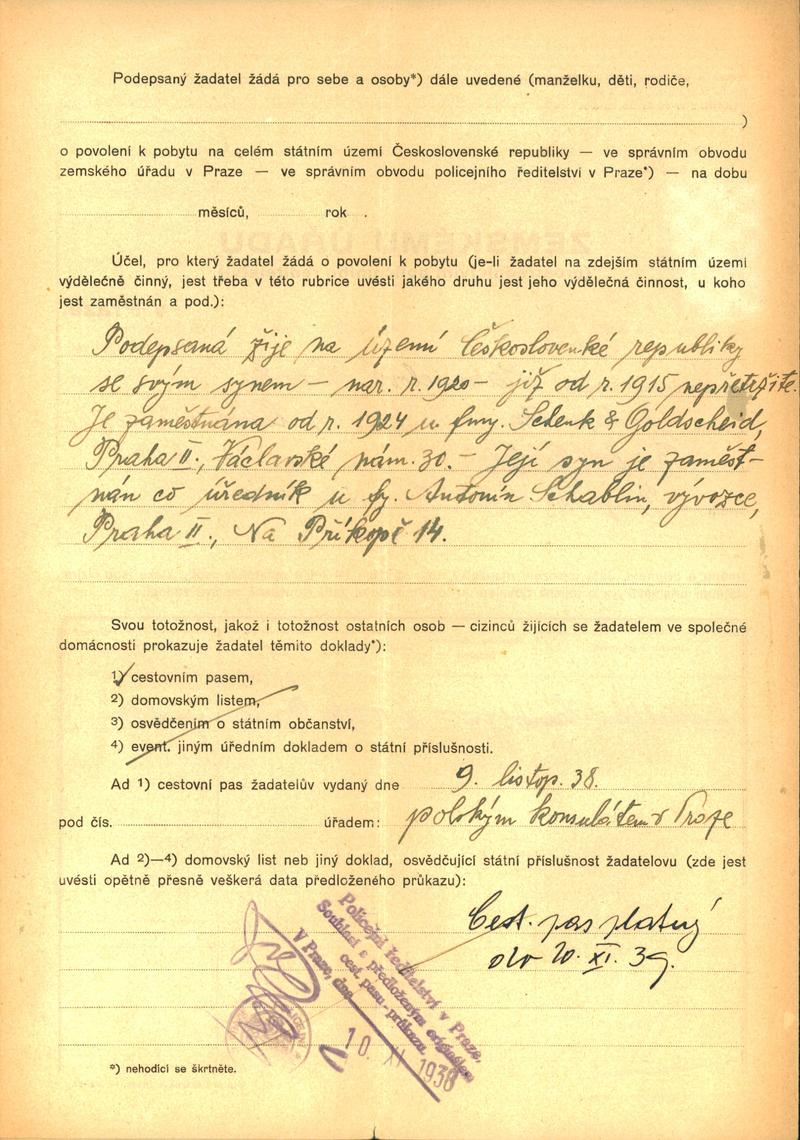 Podepsaný žadatel žádá pro sebe a osoby*) dále uvedené (manželku, děti, rodiče,
)
o povolení k pobytu na celém státním území Československé republiky — ve správním obvodu
zemského úřadu v Praze — ve správním obvodu policejního ředitelství v Praze*) — na dobu
měsíců, rok .
Účel, pro který žadatel žádá o povolení k pobytu (je-li žadatel na zdejším státním území
výdělečně činný, jest třeba v této rubrice uvésti jakého druhu jest jeho výdělečná činnost, u koho
jest zaměstnán a pod.):
Podepsaná žije na území Československé republiky
se svým synem – nar. r. 1920 – již od r. 1915 nepřetržitě.
Je zaměstnána od r. 1924 u fmy. Schenk & Goldscheid,
Praha II., Václavské nám. 30. – Její syn je zaměst-
nán co úředník u fy. Antonín Schablin, vývozce,
Praha II., Na Příkopě 14.
Svou totožnost, jakož i totožnost ostatních osob — cizinců žijících se žadatelem ve společné
domácnosti prokazuje žadatel těmito doklady*):
1) cestovním pasem,
2) domovským listem,
3) osvědčením o státním občanství,
4) event. jiným úředním dokladem o státní příslušnosti.
Ad 1) cestovní pas žadatelův vydaný dne 9. listop. 38.
pod čís. úřadem: polským konsulátem v Praze
Ad 2)—4) domovský list neb jiný doklad, osvědčující státní příslušnost žadatelovu (zde jest
uvésti opětně přesně veškerá data předloženého průkazu):
Cest. pas platný
do 20. XI. 39.
Policejní ředitelství v Praze.
Souhlasí s předloženým originálem
cest. pasu - průkazu.
V Praze, dne
10. XI 1938
*) nehodící se škrtněte.